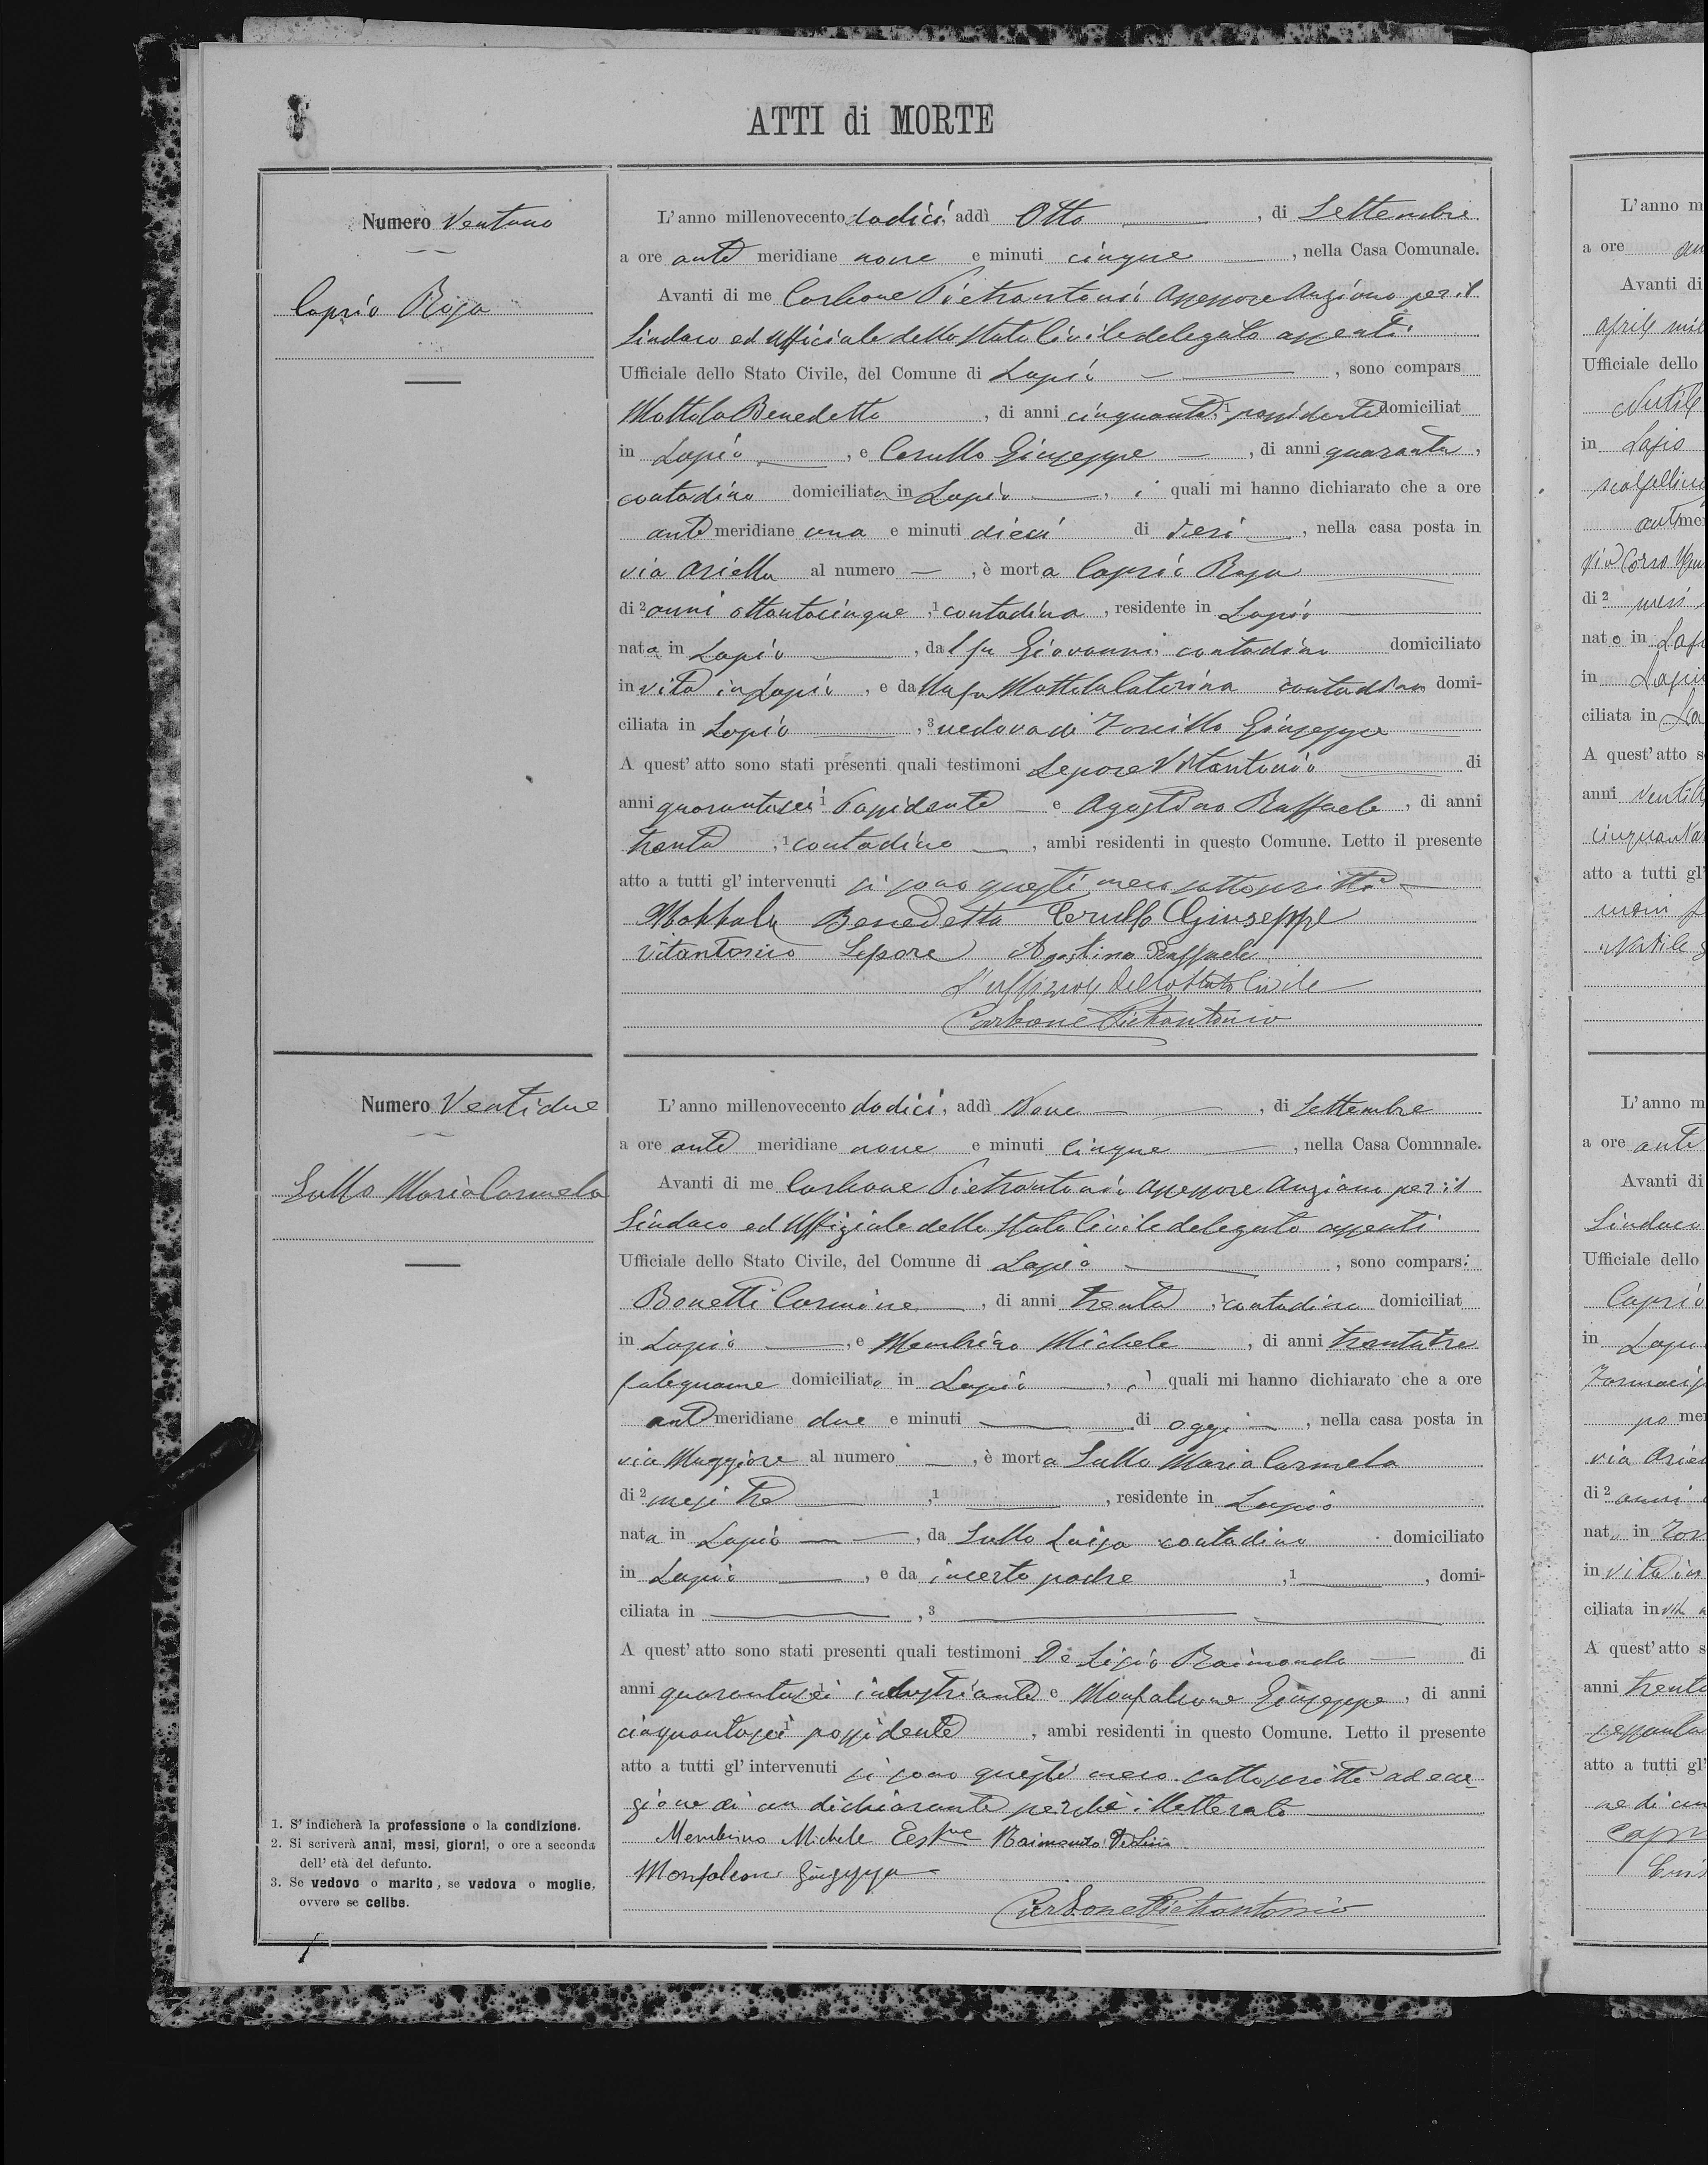 ATTI di MORTE
Numero Ventuno
Caprio Rosa
L'anno millenovecento dodici, addì Otto, di Settembre
a ore ante meridiane nove e minuti cinque, nella Casa Comunale.
Avanti di me Carbone Pietrantonio Assessore Anziano per il
Sindaco ed Ufficiale dello Stato Civile delegato assenti
Ufficiale dello Stato Civile, del Comune di Lapio, sono compars
Mottola Benedetto, di anni cinquanta, 1 possidente domiciliat
in Lapio, e Cerullo Giuseppe, di anni quaranta,
contadino domiciliato in Lapio, i quali mi hanno dichiarato che a ore
ante meridiane una e minuti dieci di ieri, nella casa posta in
via Ariella al numero —, è morta Caprio Rosa
di 2 anni ottantacinque, 1 contadina, residente in Lapio
nata in Lapio, dal fu Giovanni contadino domiciliato
in vita in Lapio, e dalla fu Mottola Caterina contadina domi-
ciliata in Lapio, 3 vedova di Forcillo Giuseppe
A quest' atto sono stati presenti quali testimoni Lepore Vitantonio di
anni quarantasei 1 Possidente e Agostino Raffaele, di anni
trenta, 1 contadino, ambi residenti in questo Comune. Letto il presente
atto a tutti gl' intervenuti si sono questi meco sottoscritti
Mottola Benedetto Cerullo Giuseppe
Vitantonio Lepore Agostino Raffaele
L'uffiziale dello Stato Civile
Carbone Pietrantonio
Numero Ventidue
Sullo Maria Carmela
L'anno millenovecento dodici, addì Nove, di Settembre
a ore ante meridiane nove e minuti Cinque, nella Casa Comnnale.
Avanti di me Carbone Pietrantonio Assessore Anziano per il
Sindaco ed Uffiziale dello Stato Civile delegato assenti
Ufficiale dello Stato Civile, del Comune di Lapio, sono comparsi
Bonetti Carmine, di anni trenta, 1 contadino domiciliat
in Lapio, e Membrino Michele, di anni trentatre
falegname domiciliato in Lapio, i quali mi hanno dichiarato che a ore
ante meridiane due e minuti — di oggi, nella casa posta in
via Maggiore al numero —, è morta Sullo Maria Carmela
di 2 mesi tre, 1 —, residente in Lapio
nata in Lapio, da Sullo Luisa contadina domiciliato
in Lapio, e da incerto padre, 1 —, domi-
ciliata in —, 3 —
A quest' atto sono stati presenti quali testimoni De Lisio Raimondo di
anni quarantasei industriante e Monfalcone Giuseppe, di anni
cinquantasei 1 possidente, ambi residenti in questo Comune. Letto il presente
atto a tutti gl' intervenuti si sono questi meco sottoscritti ad ecce-
zione di un dichiarante perchè illetterato
Membrino Michele Raimondo De Lisio
Monfalcone Giuseppe
Carbone Pietrantonio
1. S' indicherà la professione o la condizione.
2. Si scriverà anni, mesi, giorni, o ore a seconda
dell' età del defunto.
3. Se vedovo o marito, se vedova o moglie,
ovvero se celibe.
L'anno m
a ore
Avanti di
april mil
Ufficiale dello
in Lapio
scalpellino
ant mer
via Corso
di 2 mesi
nato in Lapi
in Lapio
ciliata in La
A quest' atto s
anni
cinquanta
atto a tutti gl'
L'anno m
a ore ante
Avanti di
Sindaco
Ufficiale dello
Caprio
in Lapio
po mer
via Ariel
di 2 anni
nat in
in vita in
ciliata in
A quest' atto s
anni trenta
sessanta
atto a tutti gl'
ne di un